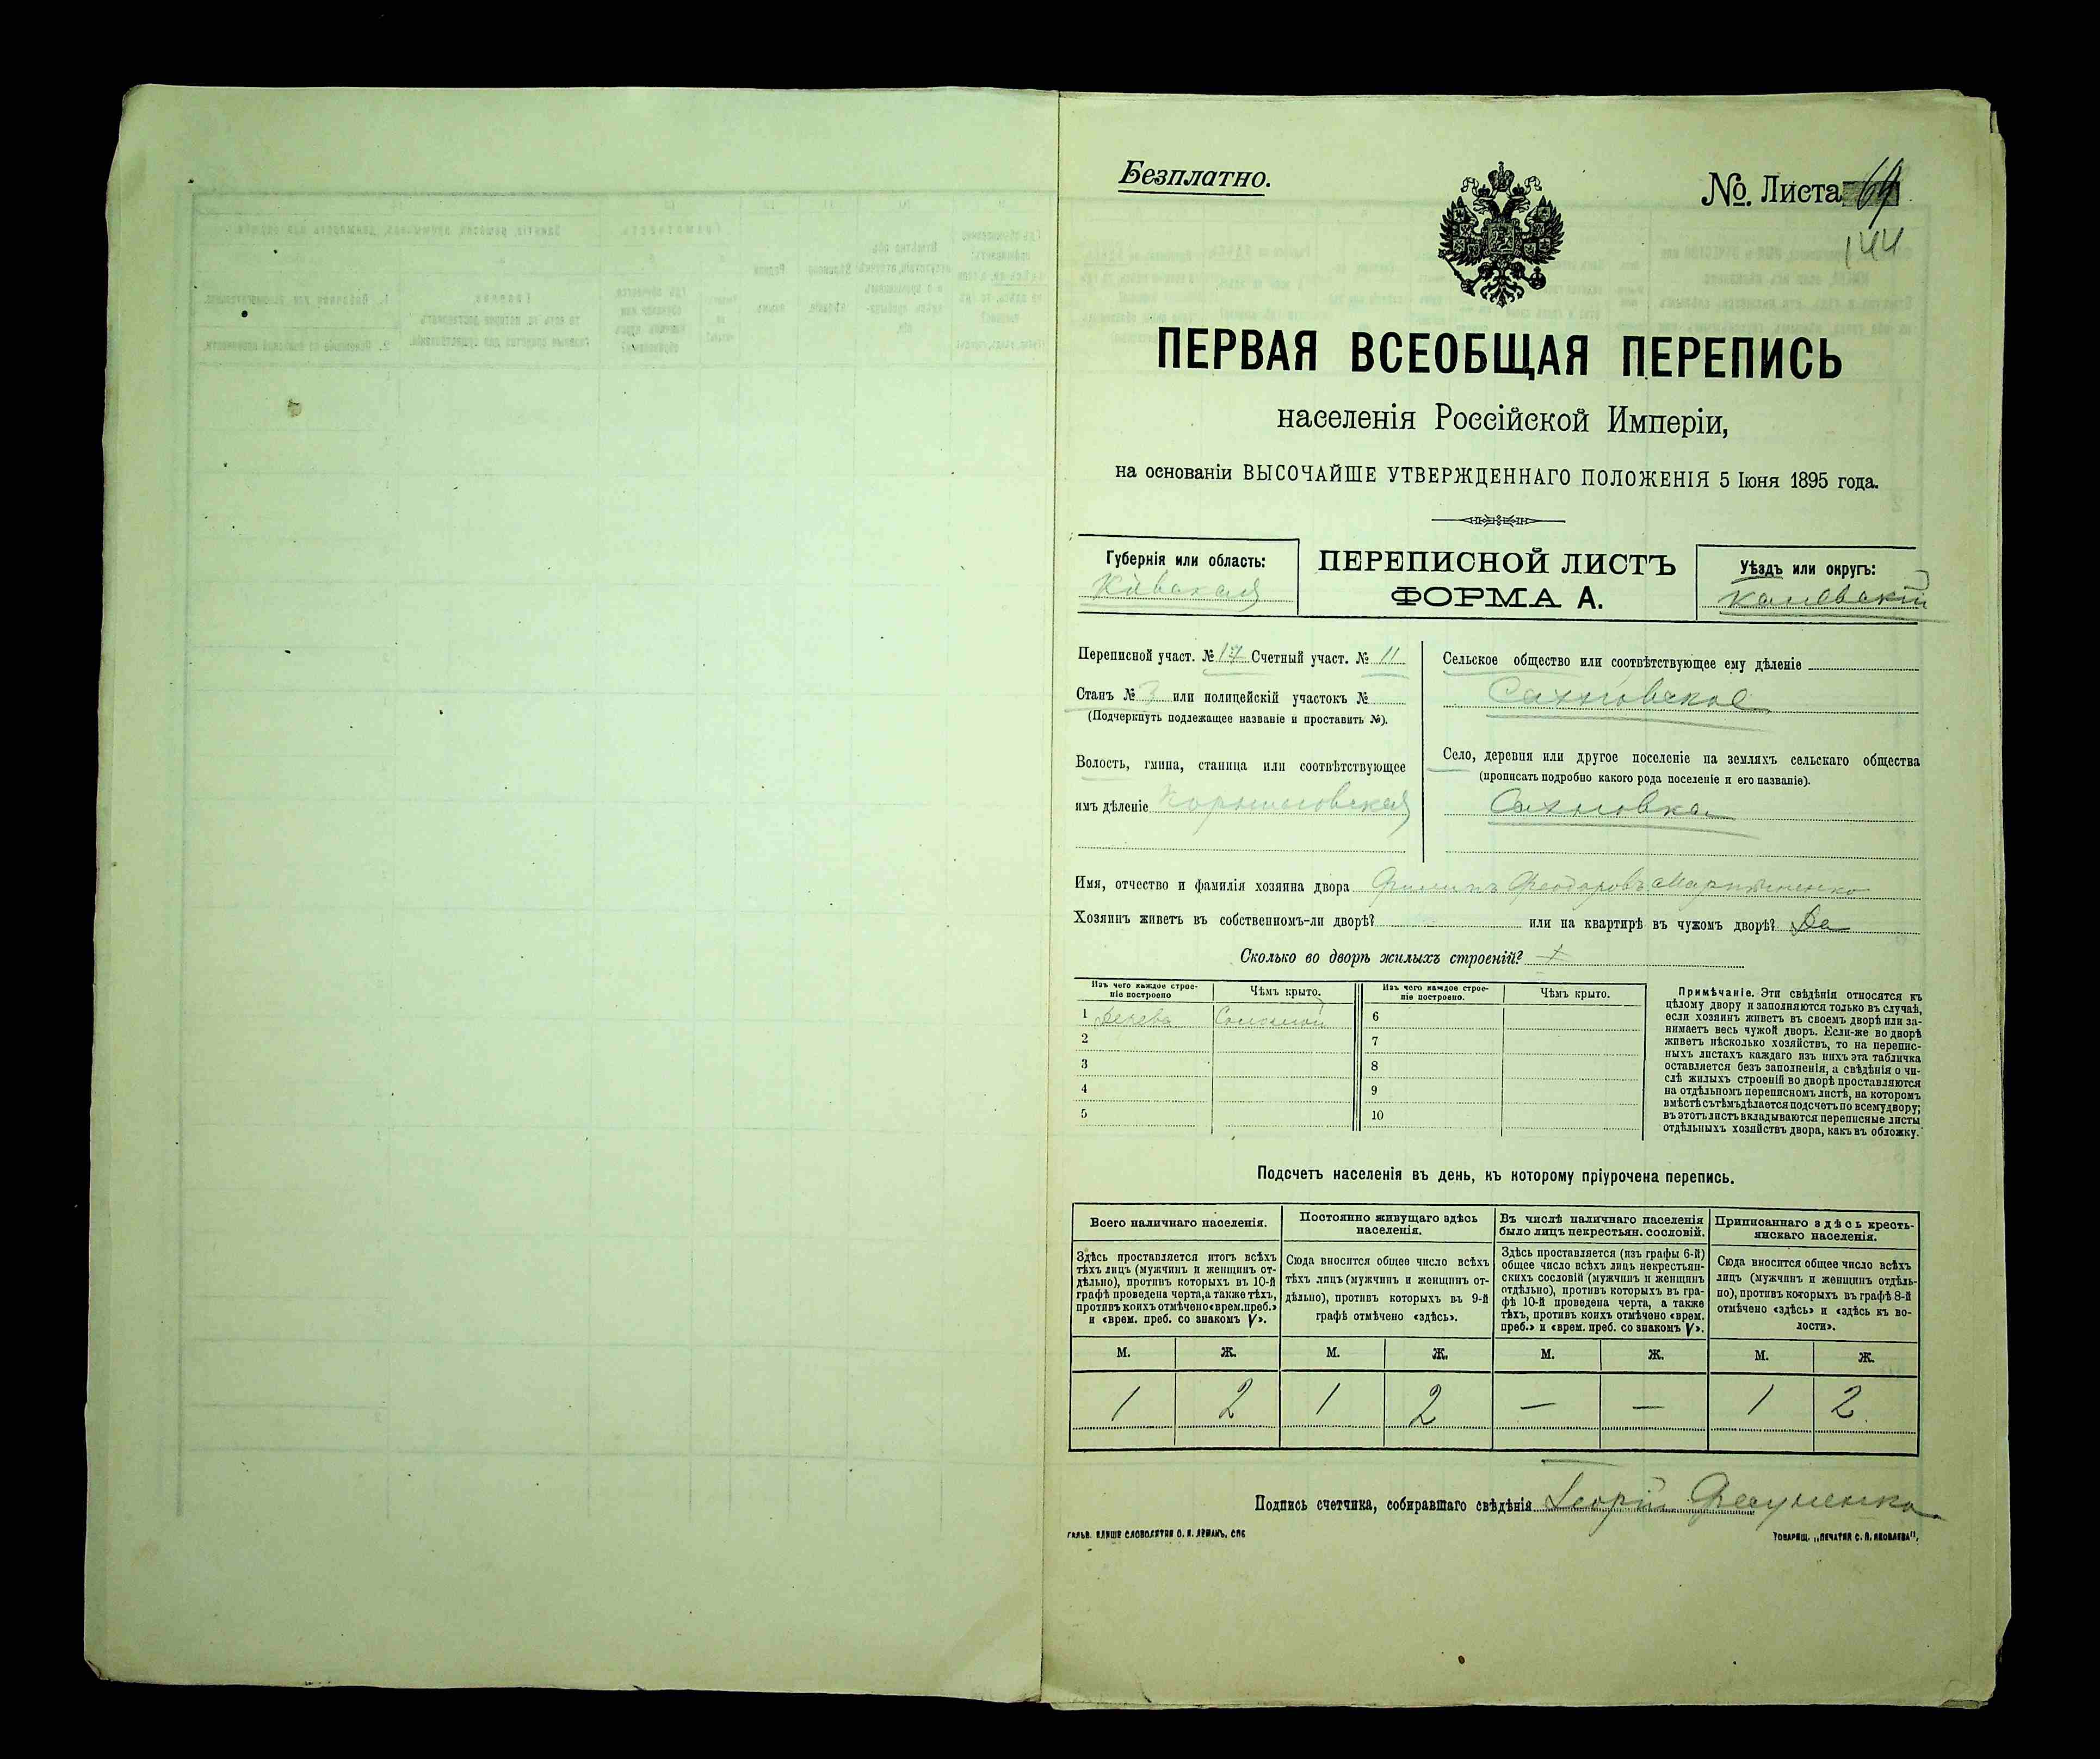 Безплатно.
№. Листа 69
144
ПЕРВАЯ ВСЕОБЩАЯ ПЕРЕПИСЬ
населенія Россійской Имперіи,
на основаніи ВЫСОЧАЙШЕ УТВЕРЖДЕННАГО ПОЛОЖЕНІЯ 5 Іюня 1895 года.
Губернія или область:
Кіевская
ПЕРЕПИСНОЙ ЛИСТЪ
ФОРМА А.
Уѣздъ или округъ:
Каневскій
Переписной участ. № 17 Счетный участ. № 11
Станъ № 3 или полицейскій участокъ №
(Подчеркнуть подлежащее названіе и проставить №).
Волость, гмина, станица или соотвѣтствующее
имъ дѣленіе
Сельское общество или соотвѣтствующее ему дѣленіе
Сахновское
Село, деревня или другое поселеніе на земляхъ сельскаго общества
(прописать подробно какого рода поселеніе и его названіе).
Сахновка
Имя, отчество и фамилія хозяина двора Филипъ Феодоровъ Мартыненко
Хозяинъ живетъ въ собственномъ-ли дворѣ? — или на квартирѣ въ чужомъ дворѣ? Да
Сколько во дворѣ жилыхъ строеній?
Изъ чего каждое строе-
ніе построено
Чѣмъ крыто.
Изъ чего каждое строе-
ніе построено.
Чѣмъ крыто.
1 Дерева Соломой
2
3
4
5
6
7
8
9
10
Примѣчаніе. Эти свѣдѣнія относятся къ
цѣлому двору и заполняются только въ случаѣ,
если хозяинъ живетъ въ своемъ дворѣ или за-
нимаетъ весь чужой дворъ. Если-же во дворѣ
живетъ нѣсколько хозяйствъ, то на перепис-
ныхъ листахъ каждаго изъ нихъ эта табличка
оставляется безъ заполненія, а свѣдѣнія о чи-
слѣ жилыхъ строеній во дворѣ проставляются
на отдѣльномъ переписномъ листѣ, на которомъ
вмѣстѣ съ тѣмъ дѣлается подсчетъ по всему двору;
въ этотъ листъ вкладываются переписные листы
отдѣльныхъ хозяйствъ двора, какъ въ обложку.
Подсчетъ населенія въ день, къ которому пріурочена перепись.
Всего наличнаго населенія.
Здѣсь проставляется итогъ всѣхъ
тѣхъ лицъ (мужчинъ и женщинъ от-
дѣльно), противъ которыхъ въ 10-й
графѣ проведена черта, а также тѣхъ,
противъ коихъ отмѣчено «врем. преб.»
и «врем. преб. со знакомъ V».
Постоянно живущаго здѣсь
населенія.
Сюда вносится общее число всѣхъ
тѣхъ лицъ (мужчинъ и женщинъ от-
дѣльно), противъ которыхъ въ 9-й
графѣ отмѣчено «здѣсь».
Въ числѣ наличнаго населенія
было лицъ некрестьян. сословій.
Здѣсь проставляется (изъ графы 6-й)
общее число всѣхъ лицъ некрестьян-
скихъ сословій (мужчинъ и женщинъ
отдѣльно), противъ которыхъ въ гра-
фѣ 10-й проведена черта, а также
тѣхъ, противъ коихъ отмѣчено «врем.
преб.» и «врем. преб. со знакомъ V».
Приписаннаго здѣсь кресть-
янскаго населенія.
Сюда вносится общее число всѣхъ
лицъ (мужчинъ и женщинъ отдѣль-
но), противъ которыхъ въ графѣ 8-й
отмѣчено «здѣсь» и «здѣсь къ во-
лости».
М. Ж. М. Ж. М. Ж. М. Ж.
1 2 1 2 — — 1 2
Подпись счетчика, собиравшаго свѣдѣнія Георгій Фесуненко
ГАЛЬВ. КЛИШЕ СЛОВОЛИТНИ О. И. ЛЕМАНЪ, СПБ
ТОВАРИЩ. „ПЕЧАТНЯ С. П. ЯКОВЛЕВА",